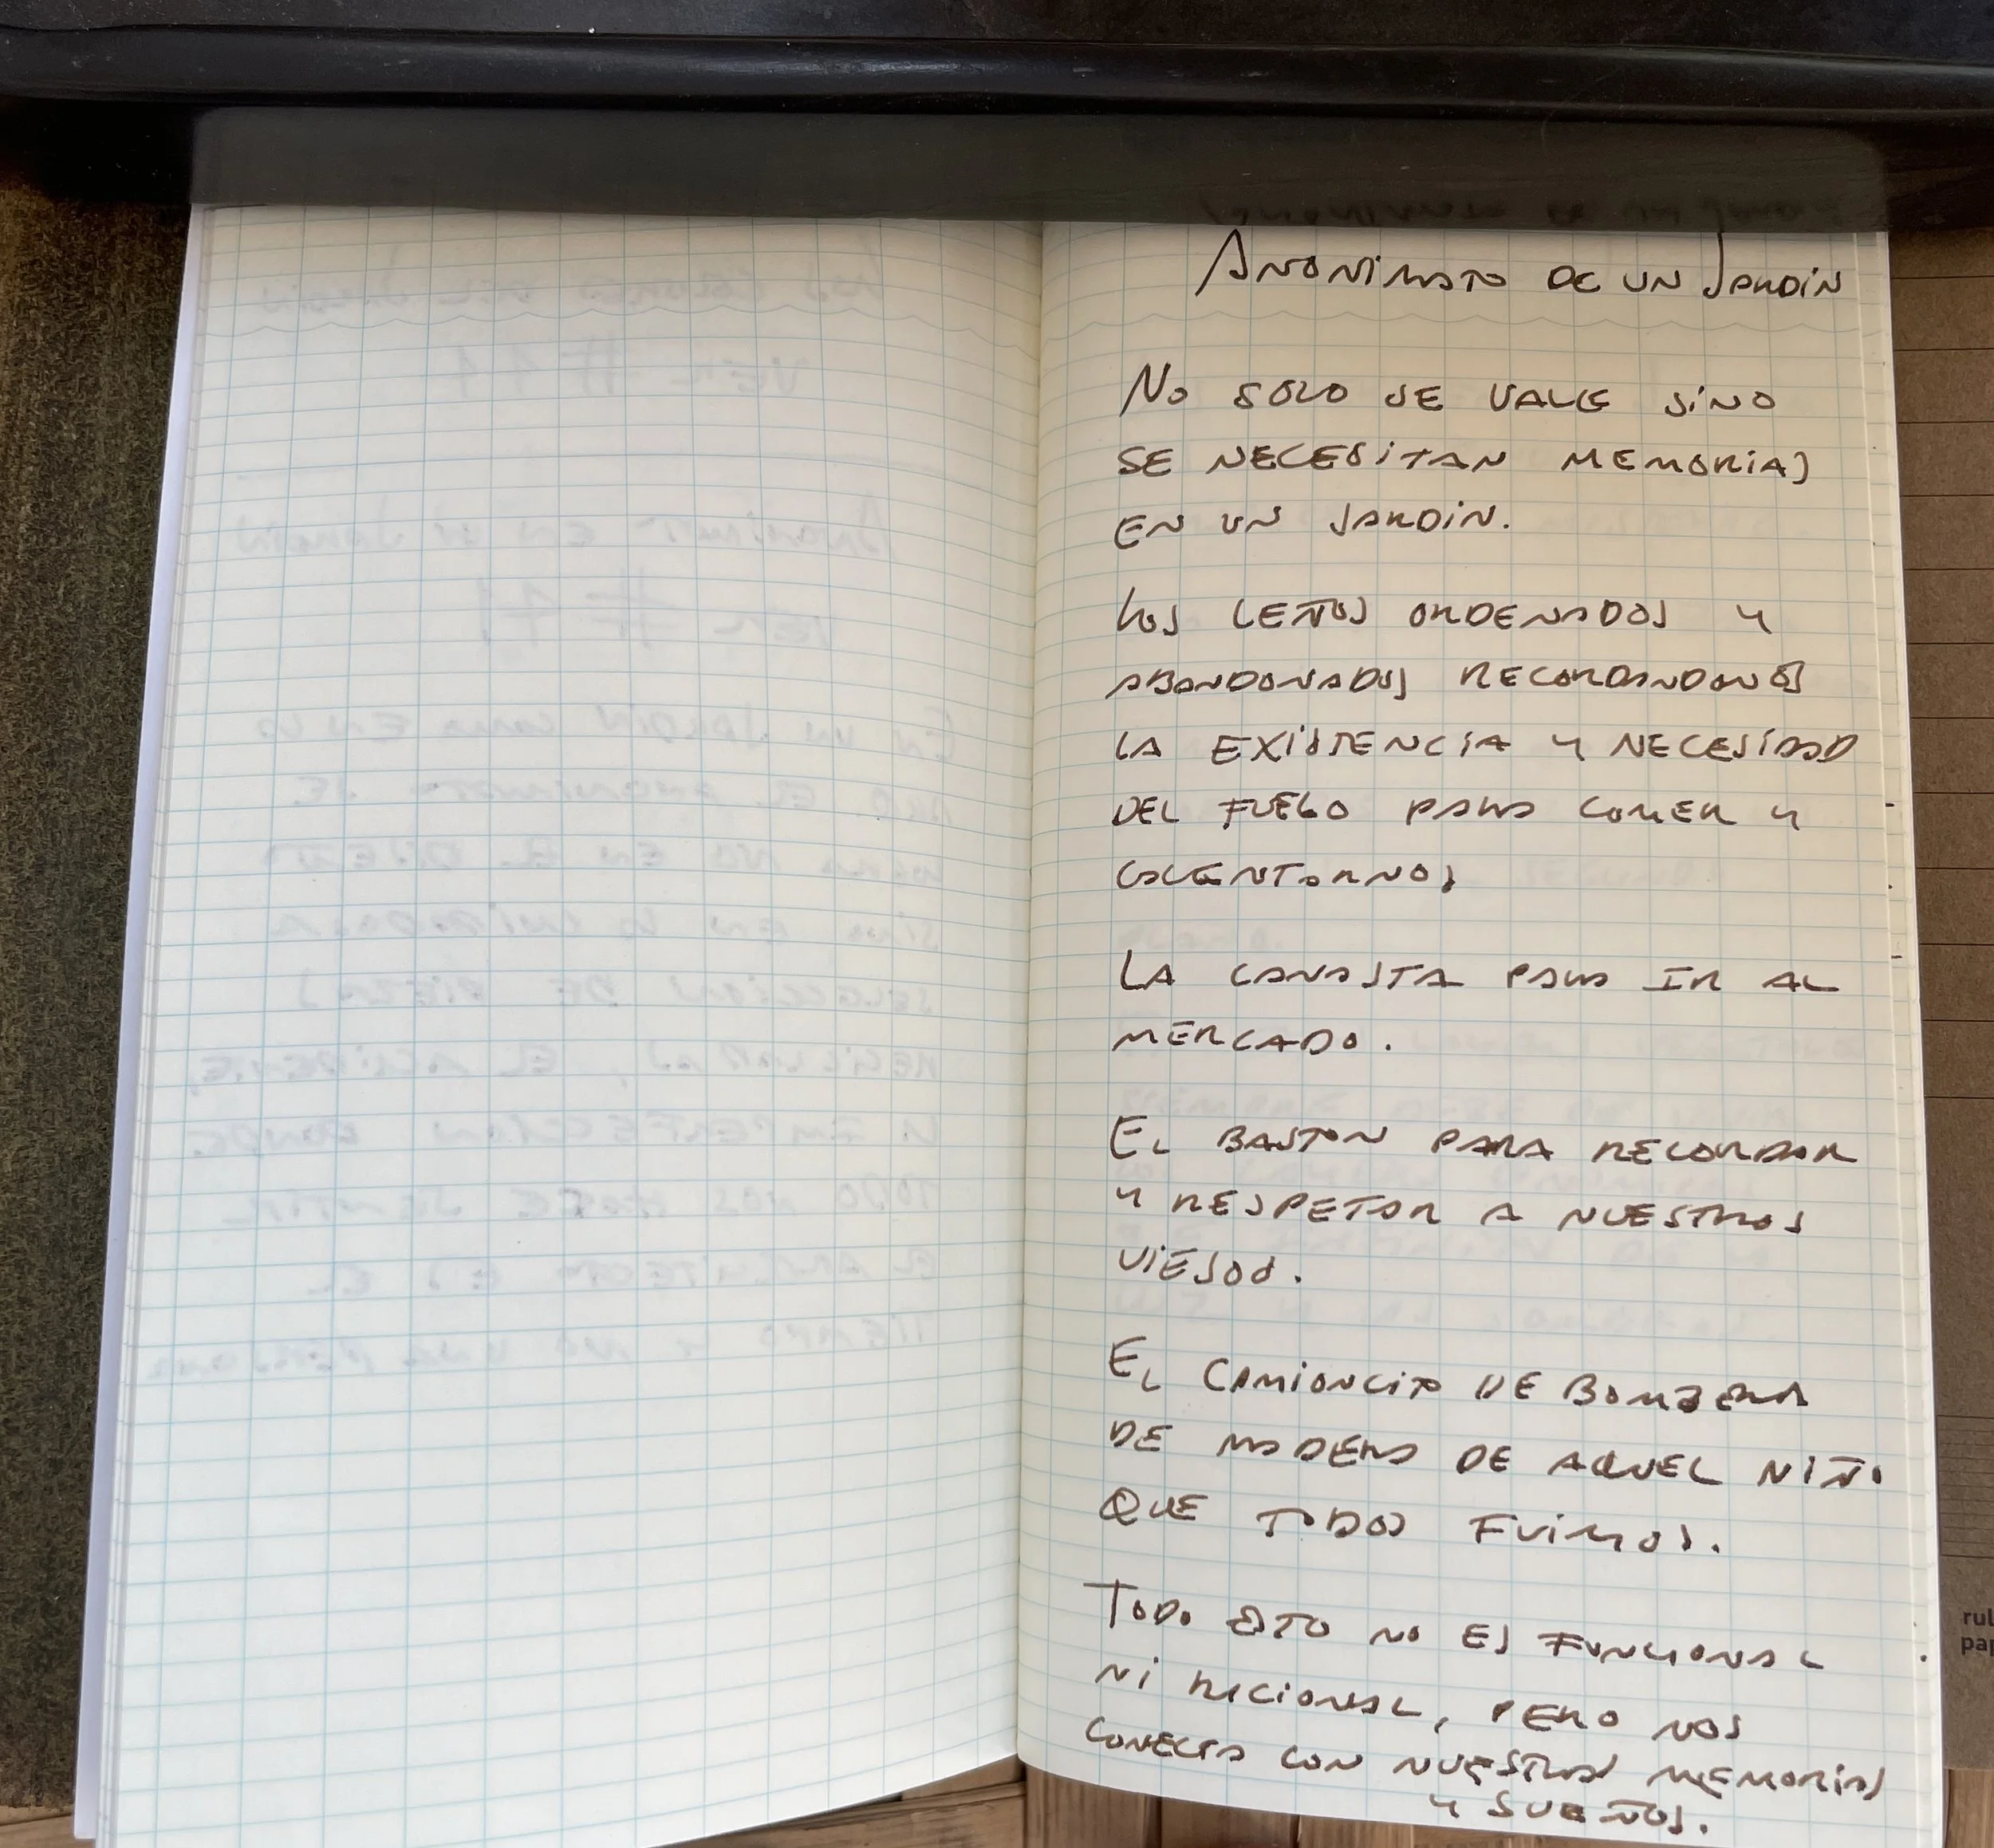 Anonimato de un Jardin
No solo se vale sino
se necesitan memorias
en un jardin.
Los leños ordenados y
abandonados recordandonos
la existencia y necesidad
del fuego para comer y
calentarnos
La canasta para ir al
mercado.
El baston para recordar
y respetar a nuestros
viejos.
El camioncito de bombera
de madera de aquel niño
que todos fuimos.
Todo esto no es funcional
ni racional, pero nos
conecta con nuestras memorias
y sueños.
rul
pap